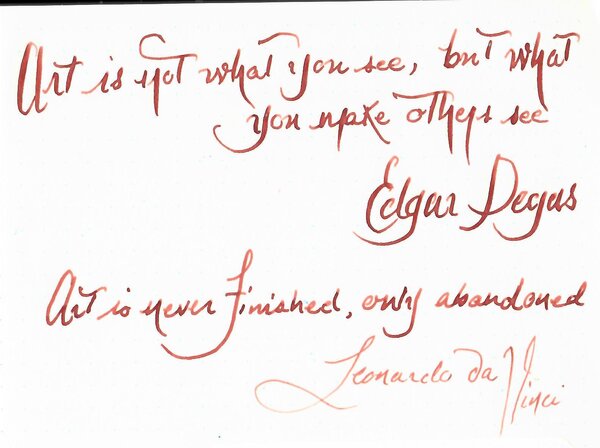 Art is not what you see, but what
you make others see
Edgar Degas
Art is never Finished, only abandoned
Leonardo da Vinci